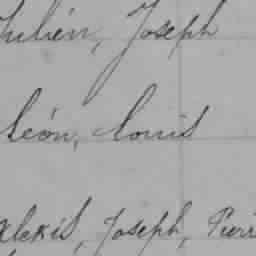 Julién, Joseph
Léon, Louis
Alexis, Joseph, Pierr